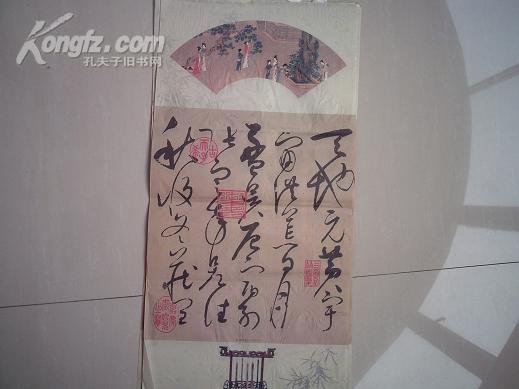 Kongfz.com
孔夫子旧书网
天地元黄宇
宙洪荒日月
盈昃辰宿列
张寒来暑往
秋收冬藏闰